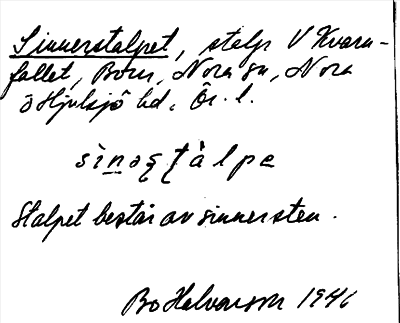 Sinnerstalpet, stalp V Kvarn-
fallet, Born, Nora sn, Nora
o Hjulsjö hd, Ör. l.
sìnəʂʈàlpe
Stalpet består av sinnersten.
Bo Halvarson 1946